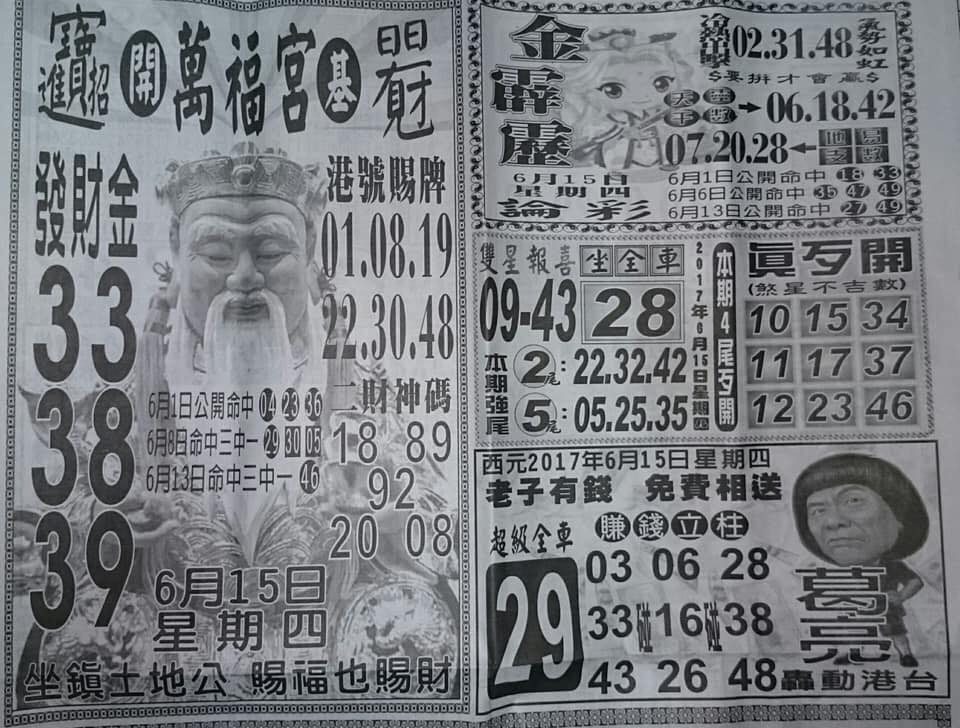 招
寶
進
開
萬福宮
基
發財金
33
38
39
港號賜牌
01.08.19
22.30.48
二財神碼
18 89
92
20 08
6月1日公開命中 04 23 36
6月8日命中三中一 29 30 05
6月13日命中三中一 46
6月15日
星期四
坐鎮土地公 賜福也賜財
金霹靂
6月15日
星期四
論彩
02.31.48
氣勢如虹
$要拼才會贏$
天干
06.18.42
07.20.28
地支
6月1日公開命中 18 33
6月6日公開命中 35 47 49
6月13日公開命中 27 49
雙星報喜
坐全車
09-43
28
本期強尾
2尾:22.32.42
5尾:05.25.35
2017年6月15日星期四
本期4尾歹開
真歹開
(煞星不吉數)
10 15 34
11 17 37
12 23 46
西元2017年6月15日星期四
老子有錢 免費相送
超級全車
29
賺錢立柱
03 06 28
33碰16碰38
43 26 48
葛亮
轟動港台